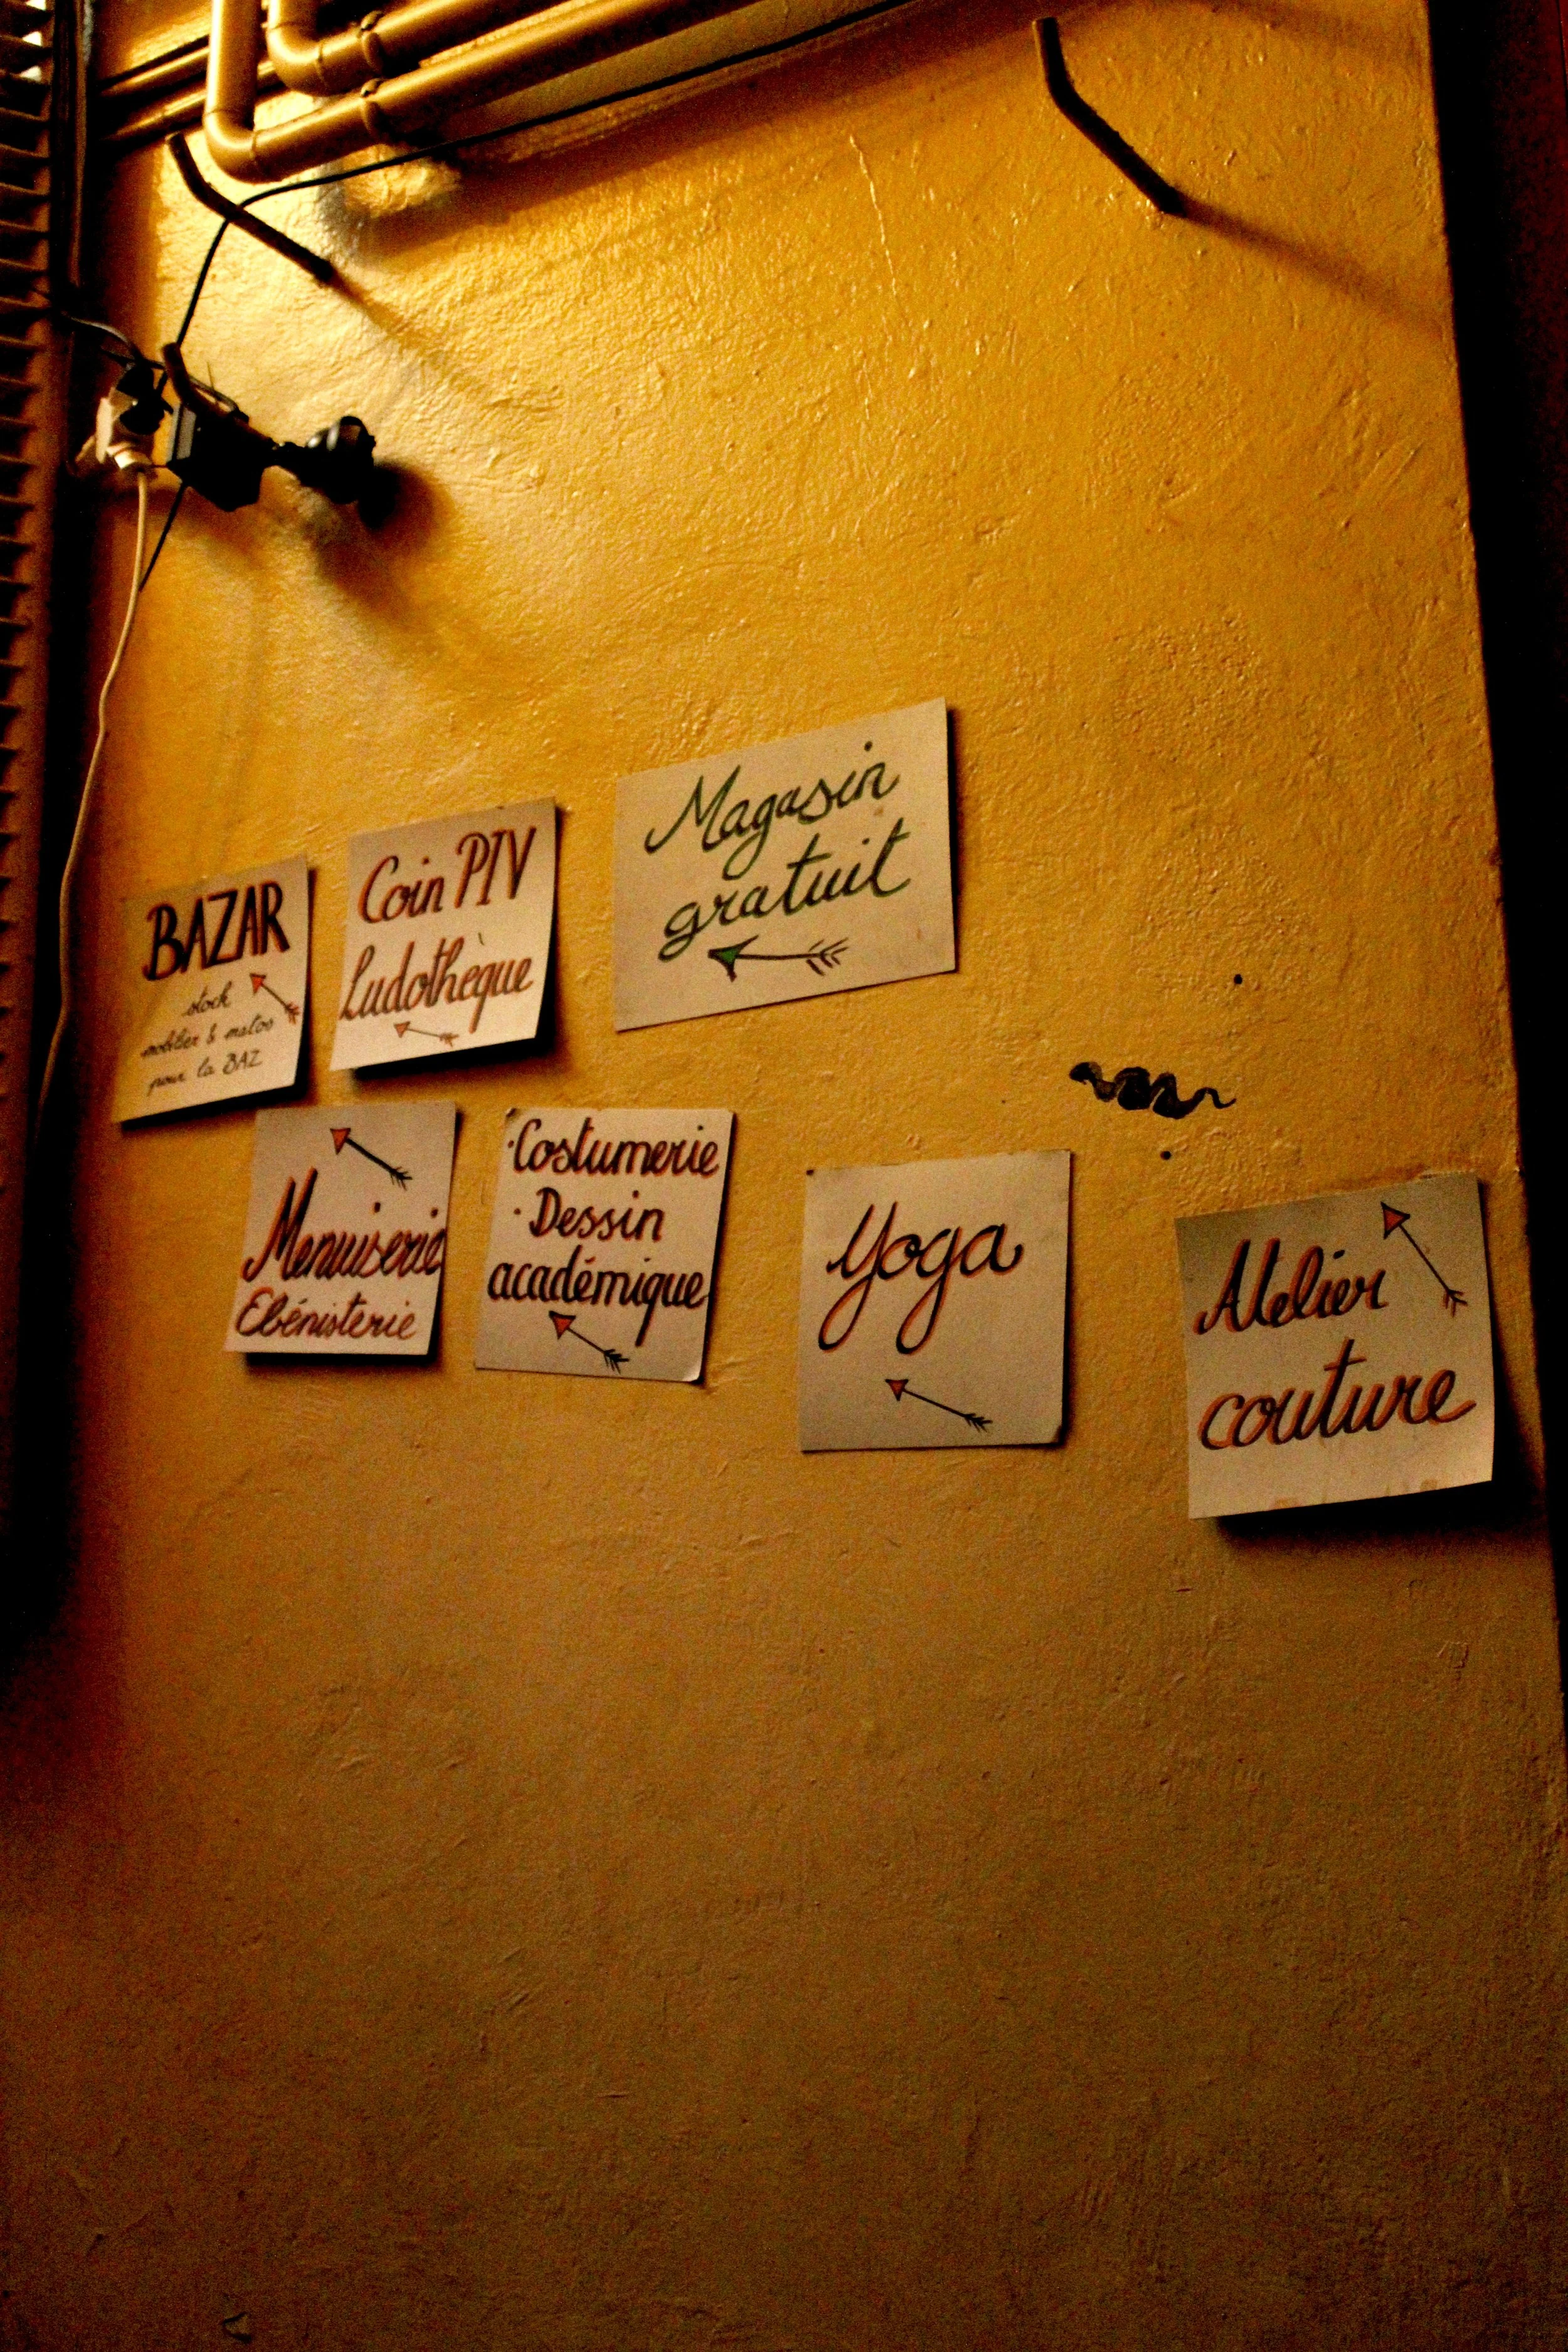 BAZAR
stock
mobilier & matos
pour la BAZ
Coin PTV
Ludothèque
Magasin
gratuit
Menuiserie
Ebénisterie
·Costumerie
·Dessin
académique
Yoga
Atelier
couture